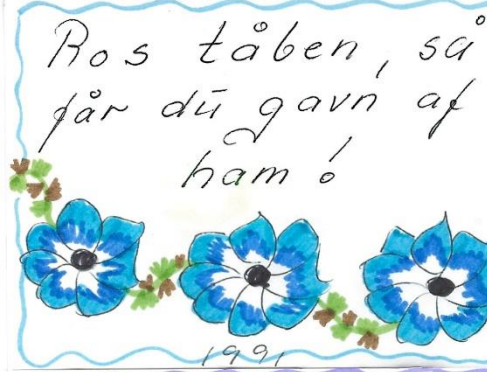 Ros tåben, så
får du gavn af
ham!
1991